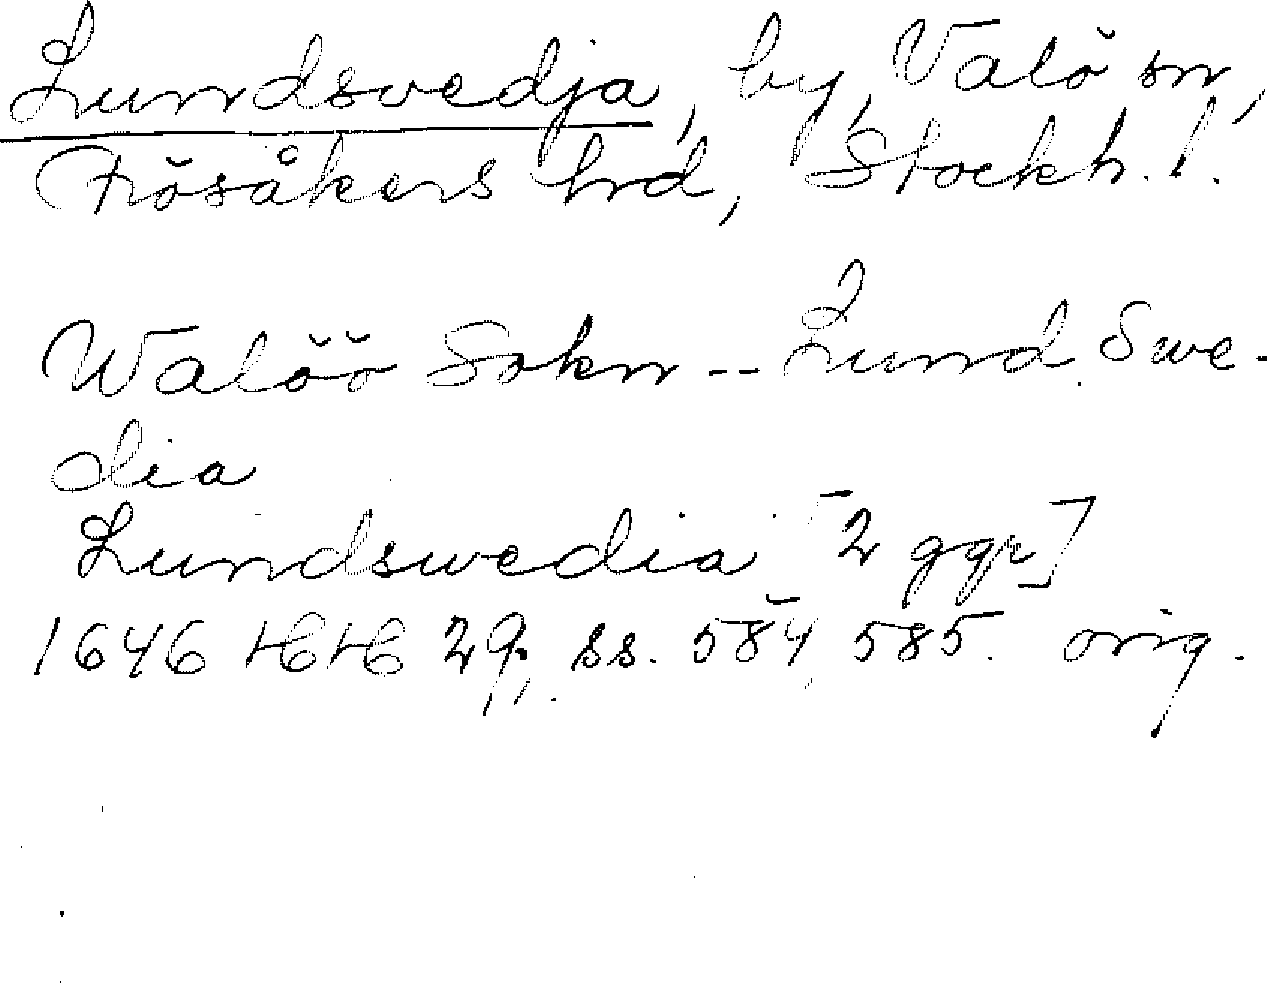 Lundsvedja, by, Valö sn,
Frösåkers hrd, Stockh. l.
Walöö Sokn -- Lund Swe-
dia
Lundswedia [2 ggr]
1646 HH 29, ss. 584, 585. orig.